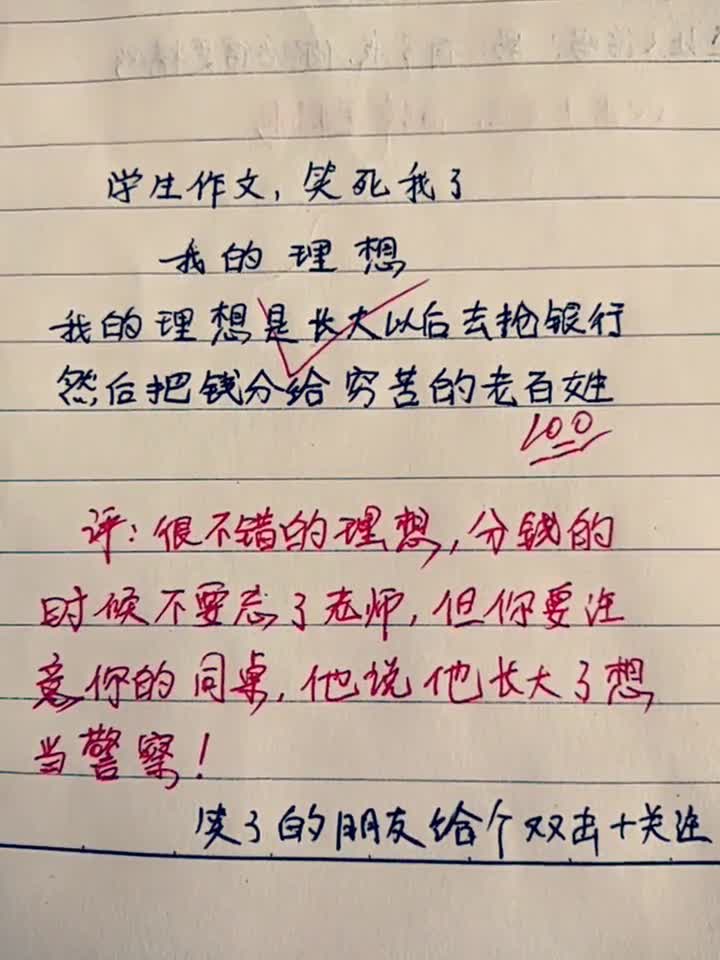 学生作文,笑死我了
我的理想
我的理想是长大以后去抢银行
然后把钱分给穷苦的老百姓
100
评:很不错的理想,分钱的
时候不要忘了老师,但你要注
意你的同桌,他说他长大了想
当警察!
笑了的朋友给个双击+关注